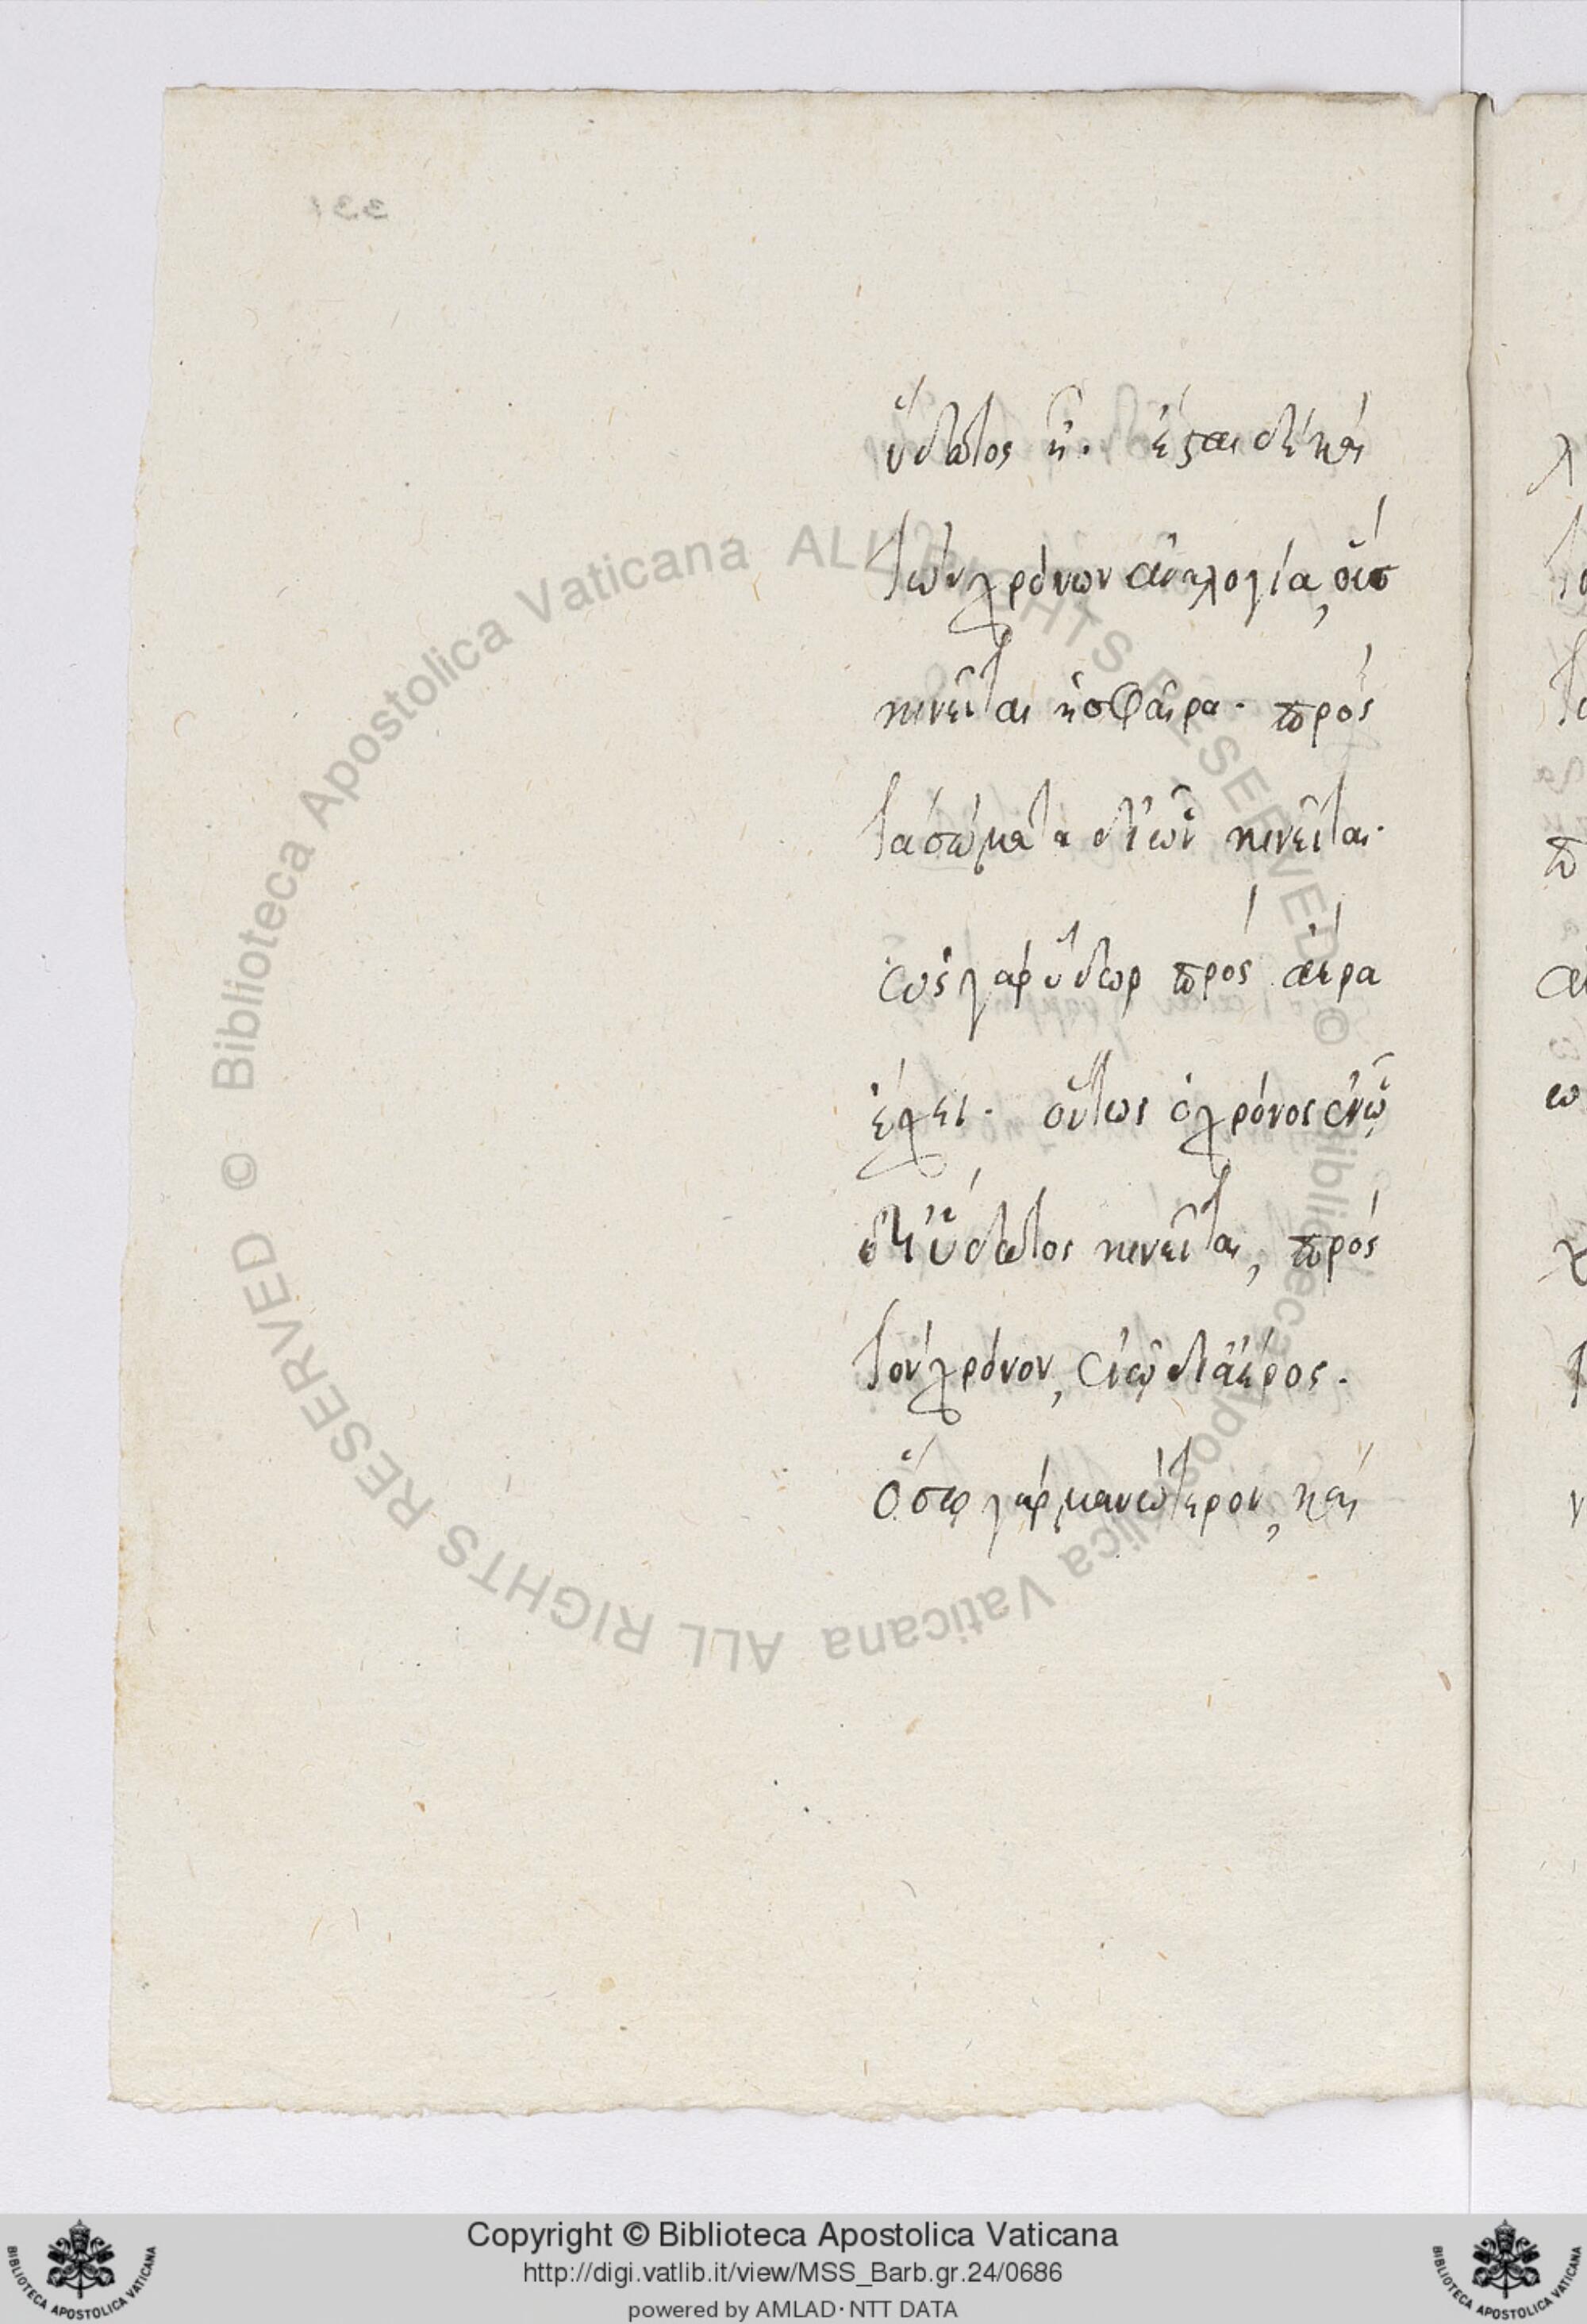 ὕδατος ἢ. ἔσται δὲ καὶ
τῶν χρόνων ἀναλογία, οἷς
κινεῖται ἡ σφαῖρα. πρὸς
τὰ σώματα δι' ὧν κινεῖται.
ὡς γὰρ ὕδωρ πρὸς ἀέρα
ἔχει. οὕτως ὁ χρόνος ἐν ᾧ
δι' ὕδατος κινεῖται, πρὸς
τὸν χρόνον, ἐν ᾧ δι' ἀέρος.
ὅσῳ γὰρ μανώτερον, καὶ
© Biblioteca Apostolica Vaticana ALL RIGHTS RESERVED © Biblioteca Apostolica Vaticana ALL RIGHTS RESERVED
Copyright © Biblioteca Apostolica Vaticana
http://digi.vatlib.it/view/MSS_Barb.gr.24/0686
powered by AMLAD·NTT DATA
BIBLIOTECA APOSTOLICA VATICANA
BIBLIOTECA APOSTOLICA VATICANA